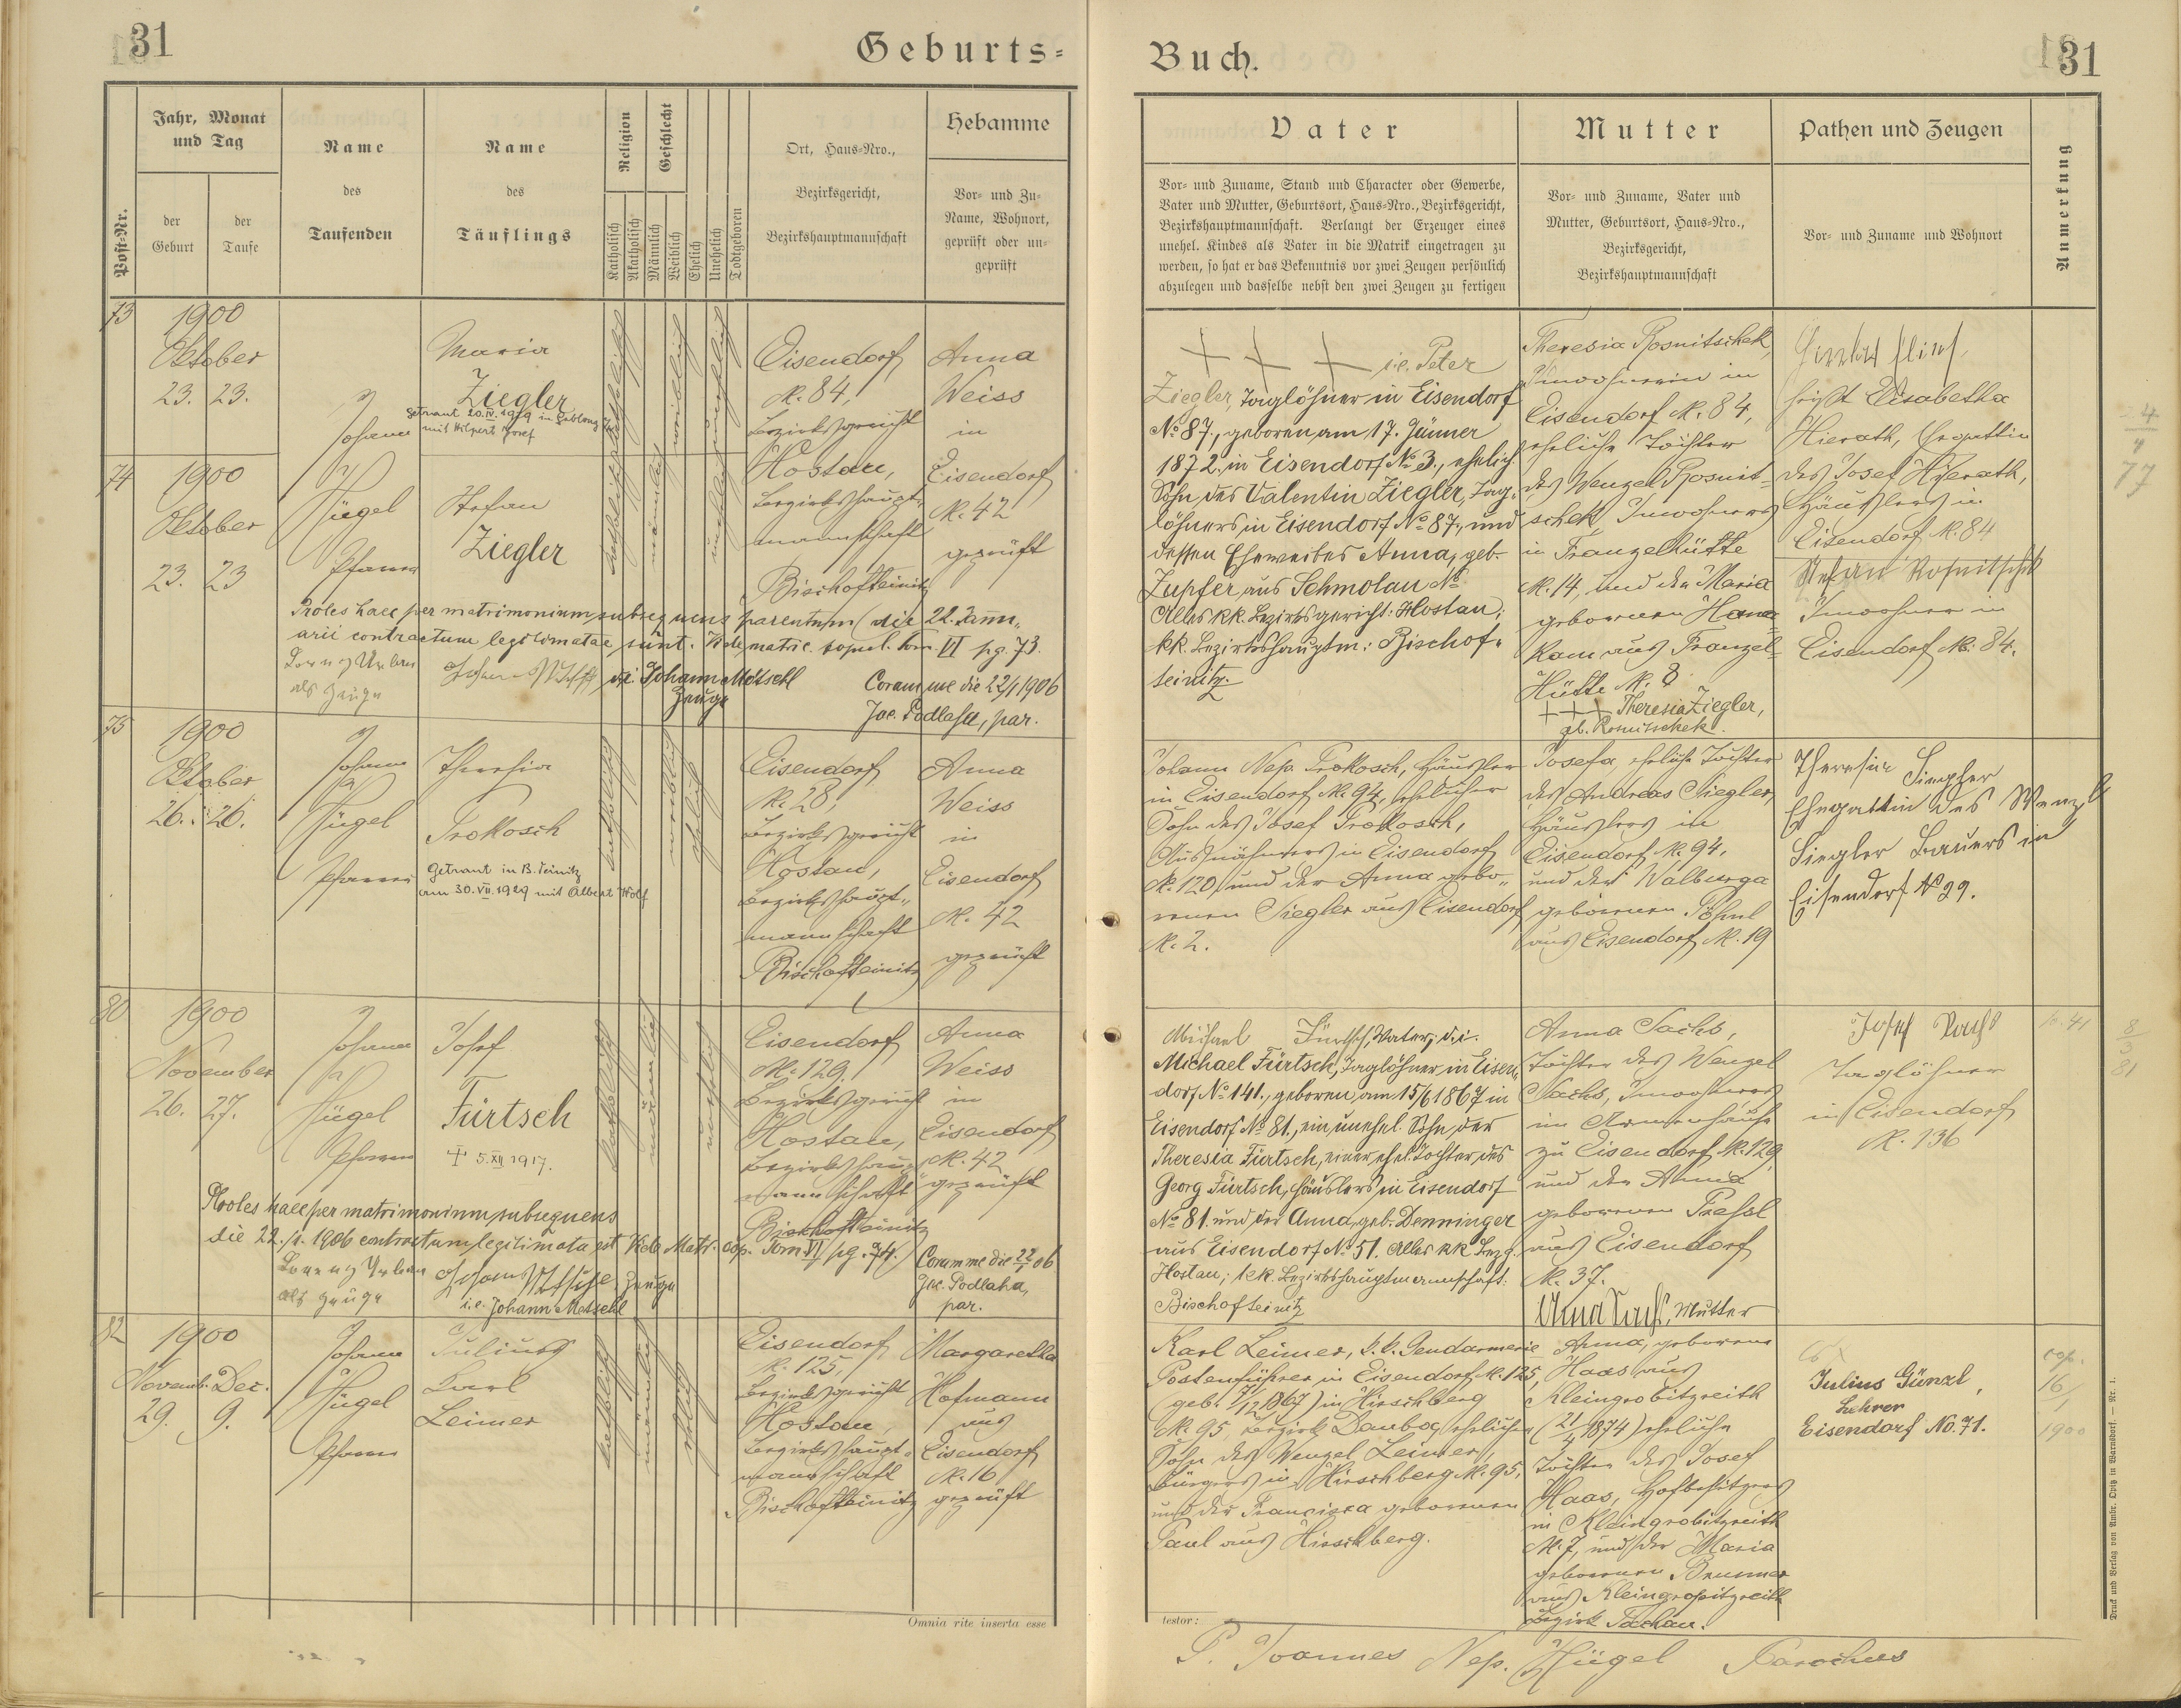 31
Geburts=
Post-Nr.
Jahr, Monat
und Tag
der
Geburt
der
Taufe
Name
des
Taufenden
Name
des
Täuflings
Religion
Katholisch
Akatholisch
Geschlecht
Männlich
Weiblich
Ehelich
Unehelich
Todtgeboren
Ort, Haus=Nro.,
Bezirksgericht,
Bezirkshauptmannschaft
Hebamme
Vor= und Zu=
Name, Wohnort,
geprüft oder un=
geprüft
73
1900
Oktober
23. 23.
Johann
Maria
Ziegler
Getraut 20.IV.1929 in Gablonz
mit Hilpert Josef
katholisch
weiblich
unehelich
Eisendorf
N. 84,
Bezirksgericht
Hostau,
Bezirkshaupt-
mannschaft
Bischofteinitz
Anna
Weiss
in
Eisendorf
N. 42
geprüft
74
1900
Oktober
23. 23
Hügel
Pfarrer
Stefan
Ziegler
männlich
unehelich
Proles haec per matrimonium subsequens parentum (die 22. Janu-
arii contractum legitimatae sunt. Vide matric. copul. Tom. VI pg. 73.
Lorenz Urban
als Zeuge
d.i. Johann Motschl
Zeuge
Coram me die 22/1 1906
Jac. Podlaha, par.
75
1900
Oktober
26. 26.
Johann
Hügel
Pfarrer
Theresia
Prokosch
Getraut in B. Teinitz
am 30.VII.1929 mit Albert Wolf
katholisch
weiblich
ehelich
Eisendorf
N. 28,
Bezirksgericht
Hostau,
Bezirkshaupt-
mannschaft
Bischofteinitz
Anna
Weiss
in
Eisendorf
N. 42
geprüft
80
1900
November
26. 27.
Johann
Hügel
Pfarrer
Josef
Fürtsch
+ 5.XII.1917.
katholisch
männlich
unehelich
Eisendorf
N. 129.
Bezirksgericht
Hostau,
Bezirkshaupt-
mannschaft
Bischofteinitz
Anna
Weiss
in
Eisendorf
N. 42
geprüft
Proles haec per matrimonium subsequens
die 22./1. 1906 contractum legitimata est Vide Matr. cop. Tom VI pg. 74.
Lorenz Urban
als Zeuge
Zeuge
i.e. Johann Motschl
Coram me die 22/1 06
Jac. Podlaha,
par.
82
1900
Novemb. Dec.
29. 9.
Johann
Hügel
Pfarrer
Julius
Karl
Leimer
katholisch
männlich
ehelich
Eisendorf
N. 125,
Bezirksgericht
Hostau,
Bezirkshaupt-
mannschaft
Bischofteinitz
Margaretha
Hofmann
aus
Eisendorf
N. 16
geprüft
Omnia rite inserta esse
Buch.
31
Vater
Vor= und Zuname, Stand und Character oder Gewerbe,
Vater und Mutter, Geburtsort, Haus=Nro., Bezirksgericht,
Bezirkshauptmannschaft. Verlangt der Erzeuger eines
unehel. Kindes als Vater in die Matrik eingetragen zu
werden, so hat er das Bekenntnis vor zwei Zeugen persönlich
abzulegen und dasselbe nebst den zwei Zeugen zu fertigen
Mutter
Vor= und Zuname, Vater und
Mutter, Geburtsort, Haus=Nro.,
Bezirksgericht,
Bezirkshauptmannschaft
Pathen und Zeugen
Vor= und Zuname und Wohnort
Anmerkung
+ + + i.e. Peter
Ziegler, Taglöhner in Eisendorf
No 87., geboren am 17. Jänner
1872. in Eisendorf No 3., ehelich.
Sohn des Valentin Ziegler, Tag-
löhners in Eisendorf No 87, und
dessen Eheweibes Anna, geb.
Zupfer aus Schmolau No
Alles kk. Bezirksgericht: Hostau;
kk. Bezirkshauptm.: Bischof-
teinitz.
Theresia Rosnitschek,
Inwohnerin in
Eisendorf N. 84,
eheliche Tochter
des Wenzel Rosnit-
schek, Inwohners
in Franzelhütte
N. 14, und der Maria
geborenen Hana-
kam aus Franzel-
Hütte N. 8
+ + + Theresia Ziegler,
gb. Rosnitschek.
heißt Elisabetha
Hierath, Ehegattin
des Josef Hierath,
Häuslers in
Eisendorf N. 84
Stefan Rosnitschek
Inwohner in
Eisendorf N. 84.
4
77
Johann Nep. Prokosch, Häusler
in Eisendorf N. 94, ehelicher
Sohn des Josef Prokosch,
Ausnähmers in Eisendorf
N. 120, und der Anna gebo-
renen Siegler aus Eisendorf
N. 2.
Josefa, eheliche Tochter
des Andreas Siegler,
Häuslers in
Eisendorf N. 94,
und der Walburga
geborenen Pöhnl
aus Eisendorf N. 19
Theresia Siegler
Ehegattin des Wenzl
Siegler Bauers in
Eisendorf No 29.
Michael Fürtsch, Vater, d.i.
Michael Fürtsch, Taglöhner in Eisen-
dorf No 141., geboren am 15/6 1867 in
Eisendorf No 81., ein unehel. Sohn der
Theresia Fürtsch, einer ehel. Tochter des
Georg Fürtsch, Häuslers in Eisendorf
No 81. und der Anna, geb. Denninger
aus Eisendorf No 51. Alles kk Bezg.
Hostau; k.k. Bezirkshauptmannschaft:
Bischofteinitz
Anna Sachs,
Tochter des Wenzel
Sachs, Inwohners
im Armenhause
zu Eisendorf N. 129,
und der Anna
geborenen Pressl
aus Eisendorf
N. 37.
Anna Sachs, Mutter
Josef Sachs
Taglöhner
in Eisendorf
N. 136
8
3
81
Karl Leimer, k.k. Gendarmerie
Postenführer in Eisendorf N. 125,
(geb. 7/12 1867) in Hirschberg
N. 95, Bezirk Dauba, ehelicher
Sohn des Wenzel Leimer,
Bürgers in Hirschberg N. 95,
und der Francisca geborenen
Paul aus Hirschberg.
Anna, geborene
Haas aus
Kleingropitzreith
(21/4 1874) eheliche
Tochter des Josef
Haas, Hofbesitzers
in Kleingropitzreith
N. 7, und der Maria
geborenen Brunner
aus Kleingropitzreith
Bezirk Tachau.
Julius Günzl,
Lehrer
Eisendorf No. 71.
cop.
16/1
1900
testor:
P. Joannes Nep. Hügel Parochus
Druck und Verlag von Ambr. Opitz in Warnsdorf. — Nr. 1.